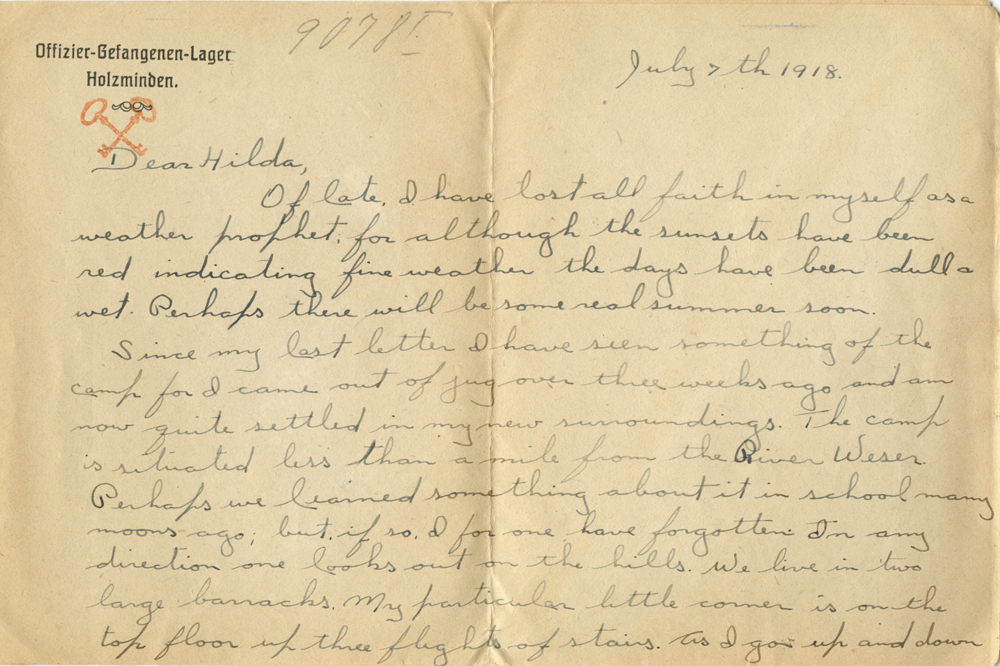 9078 I
Offizier-Gefangenen-Lager
Holzminden.
July 7th 1918.
Dear Hilda,
Of late, I have lost all faith in myself as a
weather prophet, for although the sunsets have been
red indicating fine weather the days have been dull a
wet. Perhaps there will be some real summer soon.
Since my last letter I have seen something of the
camp for I came out of jug over three weeks ago and am
now quite settled in my new surroundings. The camp
is situated less than a mile from the River Weser.
Perhaps we learned something about it in school many
moons ago; but, if so, I for one have forgotten. In any
direction one looks out on the hills. We live in two
large barracks. My particular little corner is on the
top floor up three flights of stairs. As I go up and down